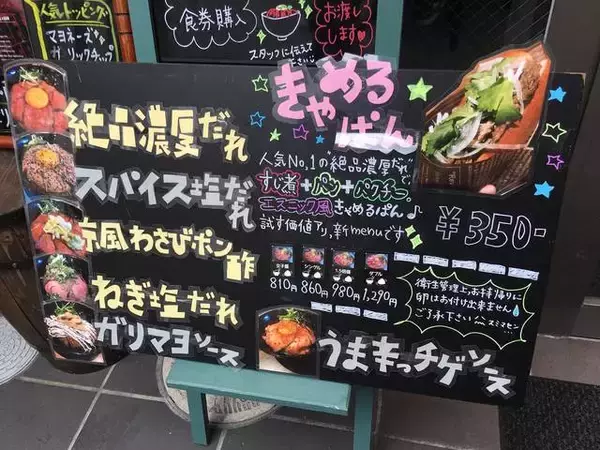 人気トッピング
マヨネーズ
ガーリックチップ
食券購入
スタッフに伝えて
お渡し
します
絶品濃厚だれ
スパイス塩だれ
京風わさびポン酢
ねぎ塩だれ
ガリマヨソース
うま辛っチゲソース
きゃめる
ぱん
人気No,1の"絶品濃厚だれ"で
すじ煮+パン+パクチー
エスニック風きゃめるぱん♪
試す価値アリ,新menuです
¥350-
シングル
ダブル
810円 860円 980円 1,290円
衛生管理上,お持帰りに
卵はお付け出来ません
ご了承下さい スミマセン